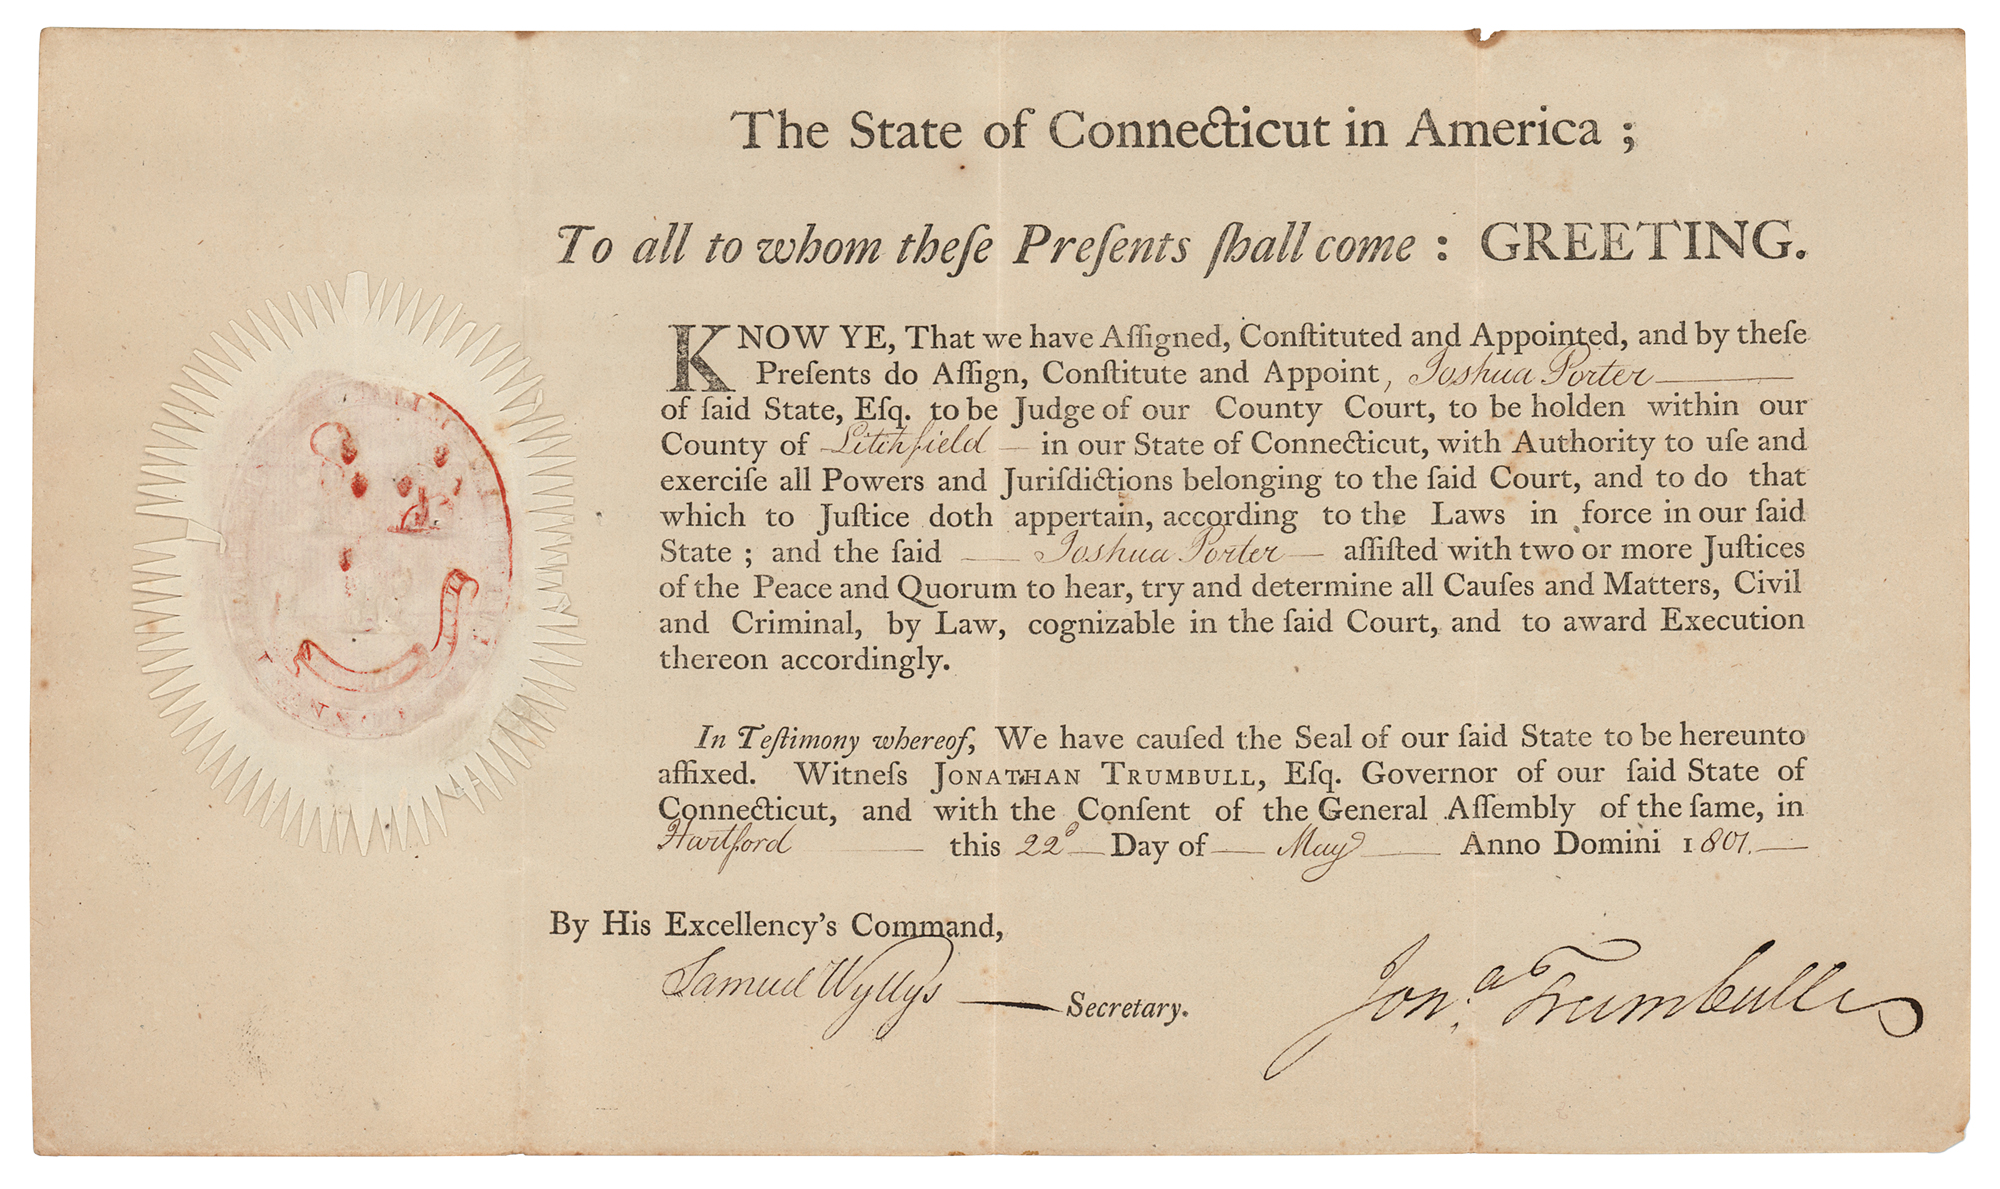 The State of Connecticut in America ;
To all to whom theſe Preſents ſhall come : GREETING.
KNOW YE, That we have Aſſigned, Conſtituted and Appointed, and by theſe
Preſents do Aſſign, Conſtitute and Appoint, Joshua Porter
of ſaid State, Eſq. to be Judge of our County Court, to be holden within our
County of Litchfield in our State of Connecticut, with Authority to uſe and
exerciſe all Powers and Juriſdictions belonging to the ſaid Court, and to do that
which to Juſtice doth appertain, according to the Laws in force in our ſaid
State ; and the ſaid Joshua Porter aſſiſted with two or more Juſtices
of the Peace and Quorum to hear, try and determine all Cauſes and Matters, Civil
and Criminal, by Law, cognizable in the ſaid Court, and to award Execution
thereon accordingly.
In Teſtimony whereof, We have cauſed the Seal of our ſaid State to be hereunto
affixed. Witneſs JONATHAN TRUMBULL, Eſq. Governor of our ſaid State of
Connecticut, and with the Conſent of the General Aſſembly of the ſame, in
Hartford this 22d Day of May Anno Domini 1801.
By His Excellency's Command,
Samuel Wyllys Secretary.
Jon.a Trumbull